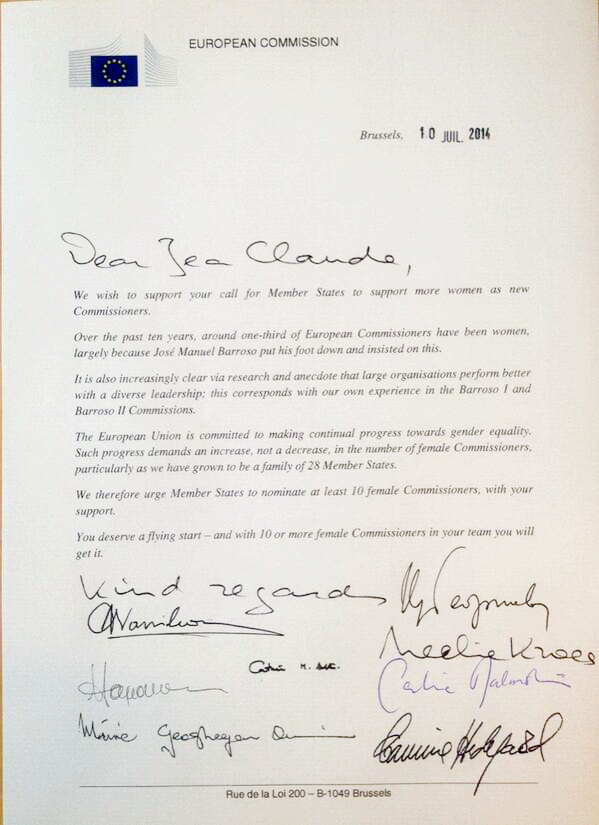 EUROPEAN COMMISSION
Brussels, 10 JUIL. 2014
Dear Jea Claude,
We wish to support your call for Member States to support more women as new
Commissioners.
Over the past ten years, around one-third of European Commissioners have been women,
largely because José Manuel Barroso put his foot down and insisted on this.
It is also increasingly clear via research and anecdote that large organisations perform better
with a diverse leadership; this corresponds with our own experience in the Barroso I and
Barroso II Commissions.
The European Union is committed to making continual progress towards gender equality.
Such progress demands an increase, not a decrease, in the number of female Commissioners,
particularly as we have grown to be a family of 28 Member States.
We therefore urge Member States to nominate at least 10 female Commissioners, with your
support.
You deserve a flying start – and with 10 or more female Commissioners in your team you will
get it.
Kind regards
Neelie Kroes
Cecilia Malmström
Máire Geoghegan Quinn
Connie Hedegaard
Rue de la Loi 200 – B-1049 Brussels